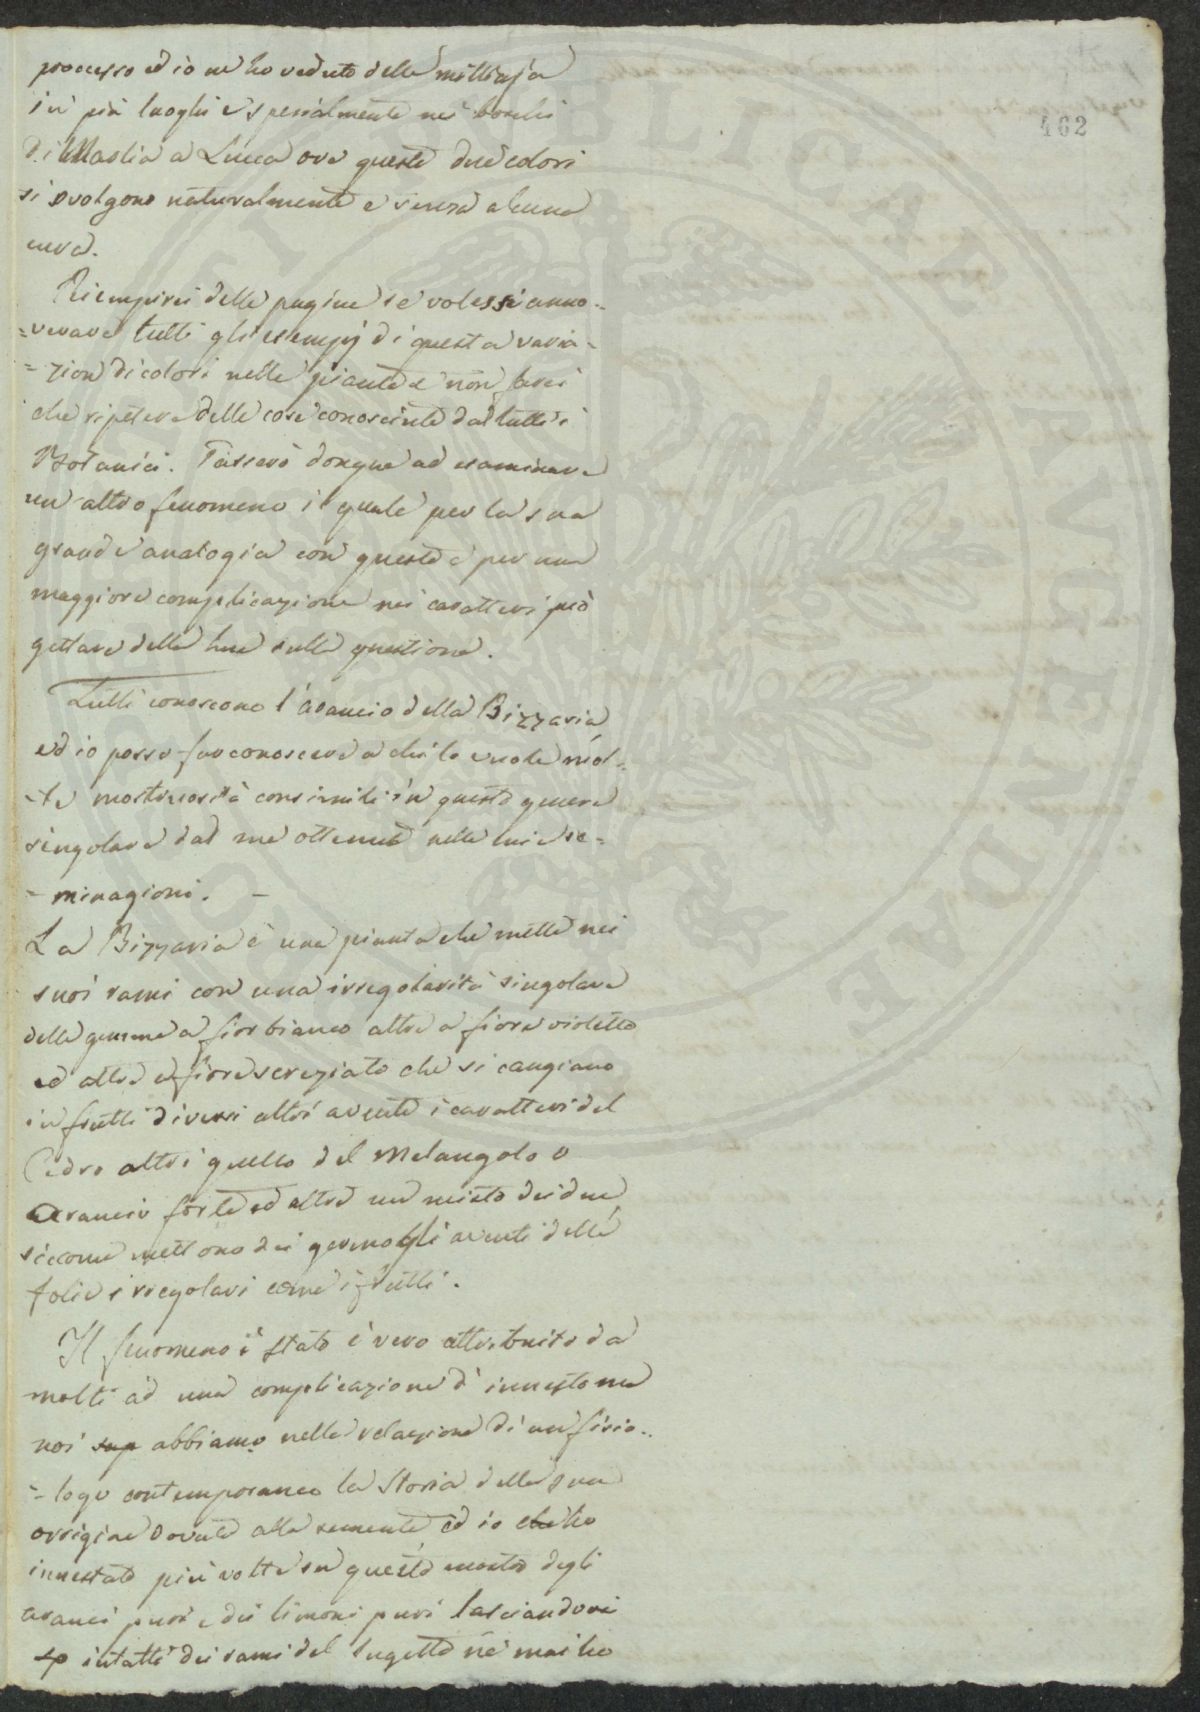 462
processo ed io ne ho veduto delle milliaja
in più luoghi e spesialmente nei boschi
di Mastia a Lucca ove queste due colori
si svolgono naturalmente e senza alcuna
cura.
Riempirei delle pagine se volessi anno-
=verare tutti gli esempj di questa varia-
=zion di colori nelle piante e non farei
che ripetere delle cose conosciute dal tutti i
Botanici. Passerò donque ad esaminare
un altro fenomeno il quale per la sua
grande analogia con questo e per una
maggiore complicazione nei caratteri può
gettare della luce sulla questione.
Tutti conoscono l'arancio della Bizzaria
ed io posso far conoscere a chi lo vuole mol-
-te mostruosità consimili in questo genere
singolare dal me ottenute nelle mie se=
-minagioni. -
La Bizzaria è una pianta che mette nei
suoi rami con una irregolarità singolare
delle gemme a fior bianco altre a fiore violetto
ed altre a fiore screziato che si cangiano
in frutti diversi altri avente i caratteri del
Cedro altri quello del Melangolo o
Arancio forte ed altre un misto dei due
siccome mettono dei germogli aventi delle
folie irregolari come i frutti.
Il fenomeno è stato è vero attribuito da
molti ad una complicazione d'innesto ma
noi sup abbiamo nella relazione di un fisio-
=logo contemporaneo la Storia della sua
orrigine dovuta alla semente ed io che ho
innestato più volte su questo mostro degli
aranci puri e dei limoni puri lasciandovi
sp intatti dei rami del sugetto nè mai ho